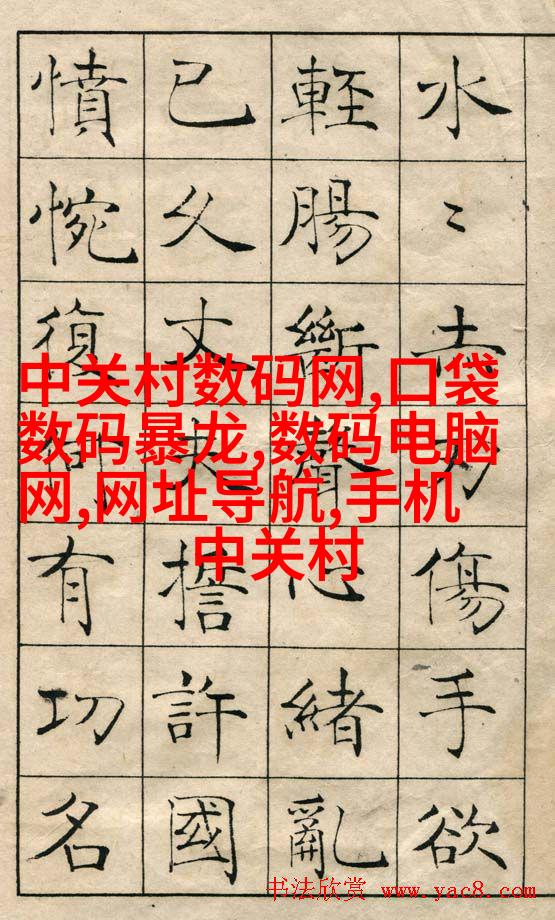 水〻赤刃傷手欲
輕腸斷聲心緒亂
已久丈夫誓許國
憤惋復何有功名
中关村数码网,口袋
数码暴龙,数码电脑
网,网址导航,手机
中关村
书法欣赏 www.yac8.com